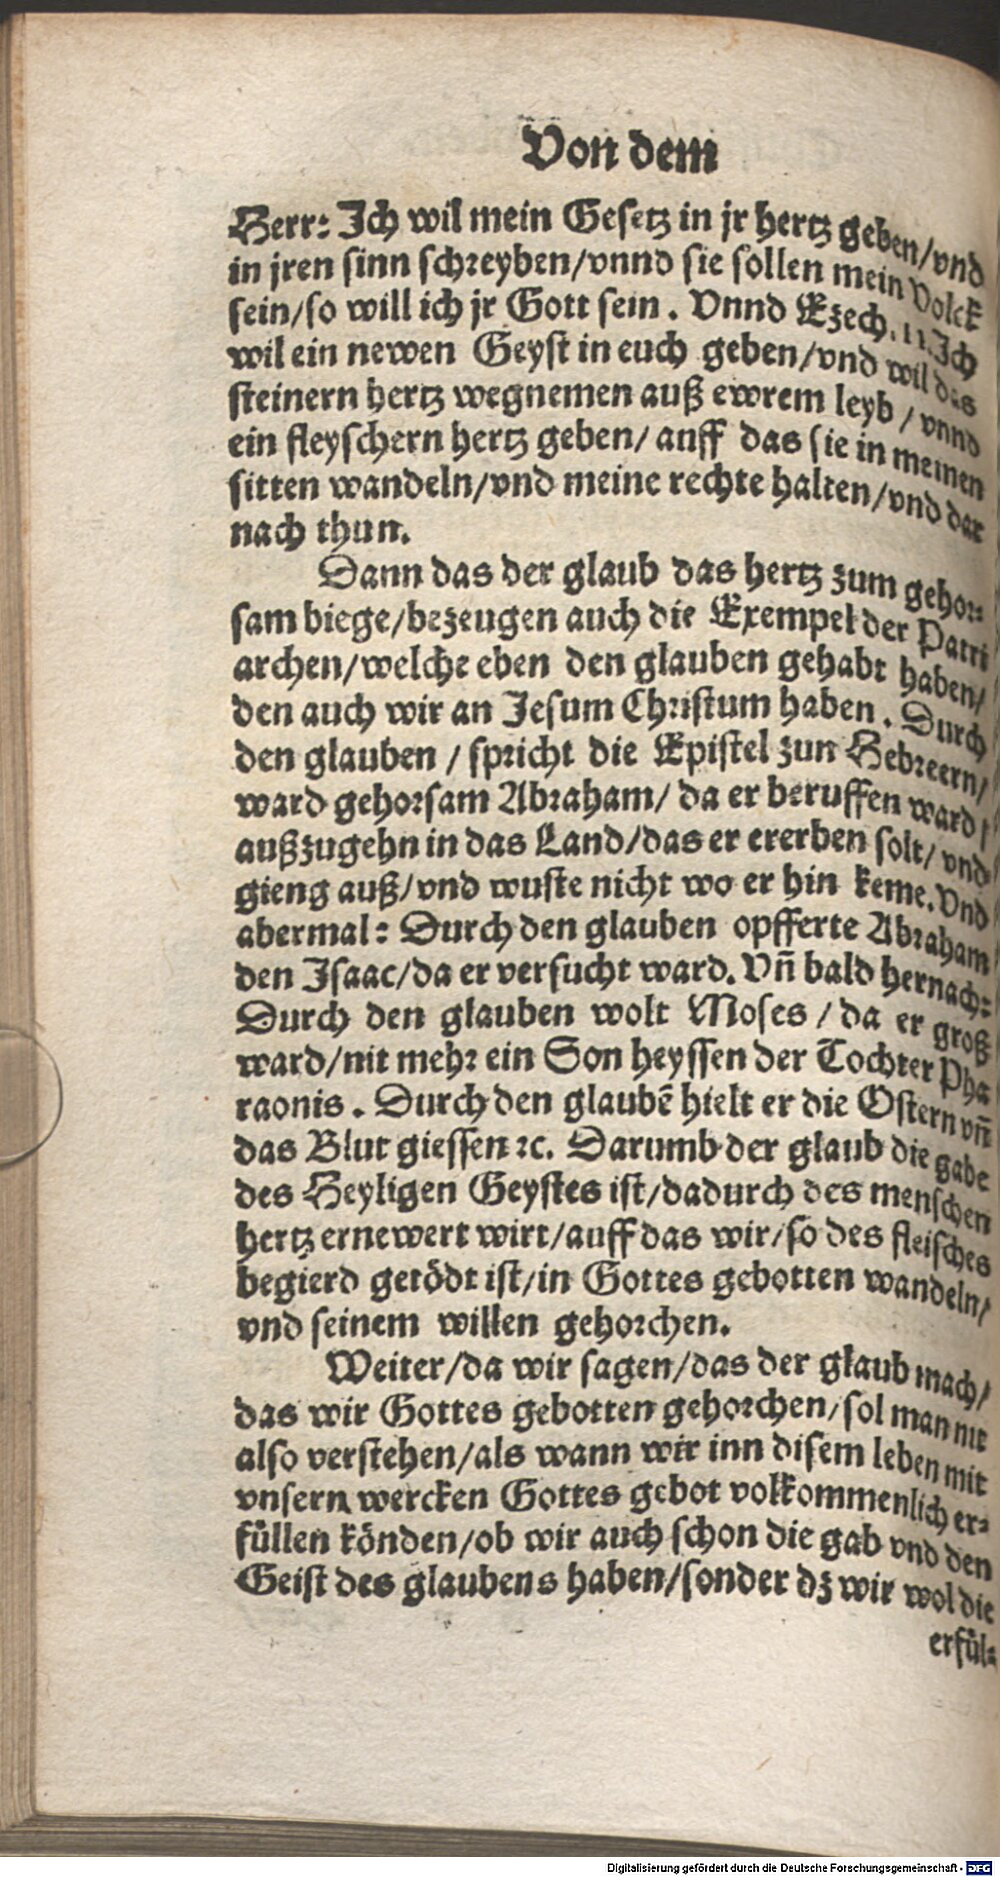 Von dem
Herr: Ich wil mein Gesetz in jr hertz geben/vnd
in jren sinn schreyben/vnnd sie söllen mein Volck
sein/so will ich jr Gott sein. Vnnd Ezech. 11. Ich
wil ein newen Geyst in euch geben/vnd wil das
steinern hertz wegnemen auß ewrem leyb/vnnd
ein fleyschern hertz geben/ auff das sie in meinen
sitten wandeln/vnd meine rechte halten/vnd dar
nach thun.
Dann das der glaub das hertz zum gehor-
sam biege/bezeugen auch die Exempel der Patri
archen/welche eben den glauben gehabt haben/
den auch wir an Jesum Christum haben. Durch
den glauben/ spricht die Epistel zun Hebreern/
ward gehorsam Abraham/ da er beruffen ward/
außzugehn in das Land/das er ererben solt/ vnd
gieng auß/vnd wuste nicht wo er hin keme. Vnd
abermal: Durch den glauben opfferte Abraham
den Isaac/da er versucht ward. Vñ bald hernach:
Durch den glauben wolt Moses/da er groß
ward/nit mehr ein Son heyssen der Tochter Pha
raonis. Durch den glaubē hielt er die Ostern vñ
das Blut giessen ꝛc. Darumb der glaub die gabe
des Heyligen Geystes ist/dadurch des menschen
hertz ernewert wirt/auff das wir/so des fleisches
begierd getödt ist/in Gottes gebotten wandeln/
vnd seinem willen gehorchen.
Weiter/da wir sagen/das der glaub mach/
das wir Gottes gebotten gehorchen/sol man nit
also verstehen/als wann wir inn disem leben mit
vnsern wercken Gottes gebot volkommenlich er-
füllen könden/ob wir auch schon die gab vnd den
Geist des glaubens haben/sonder dz wir wol die
erfül-
Digitalisierung gefördert durch die Deutsche Forschungsgemeinschaft - DFG